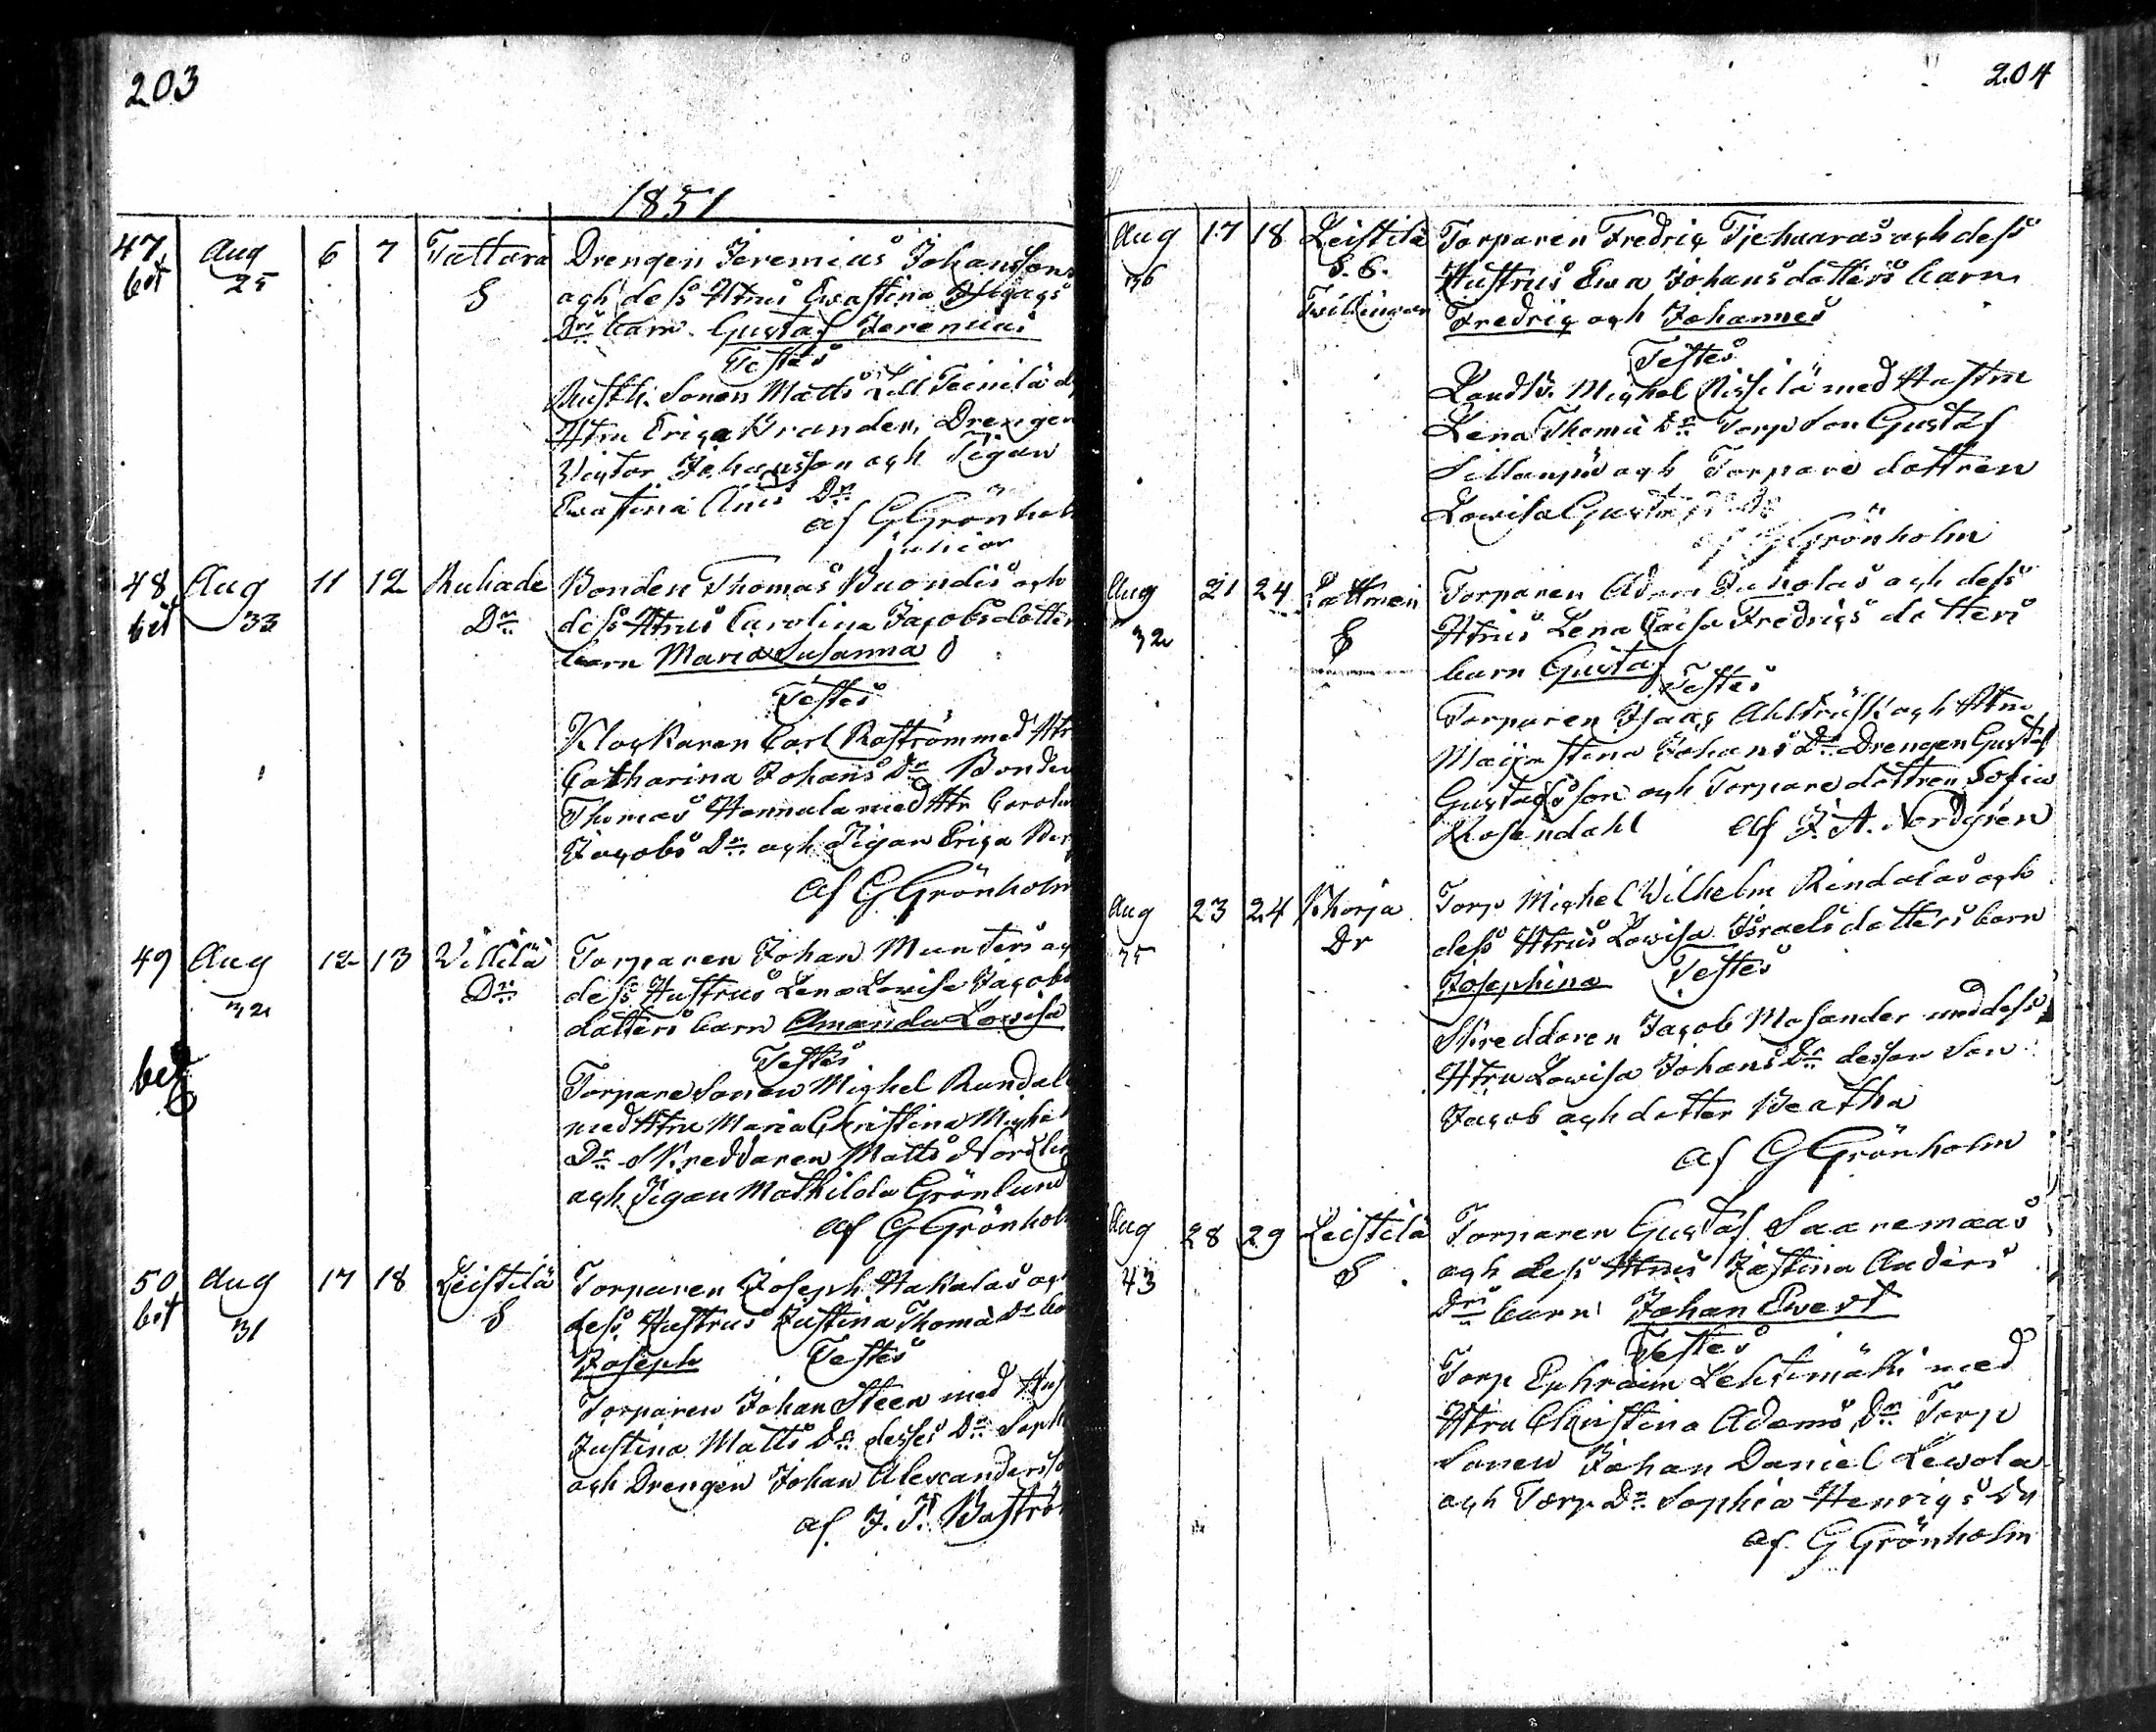 203
1851
47 Aug 6 7 Tattara Drengen Jeremias Johanssons
bet 25 S och dess Htrus Ewastina Isaacs
Drs barn Gustaf Jeremias
Testes
Rusth. Sonen Matts Lill Teinilä
Htru Erica Brander, Drengen
Victor Johansson och Pigan
Ewastina Anis Dr
af G Grönholm
junior
48 Aug 11 12 Ruhade Bonden Thomas Buondis och
bet 33 Dr dess Htrus Carolina Jacobsdotters
barn Maria Susanna
Testes
Klockaren Carl Boström med Htr
Catharina Johans Dr Bonden
Thomas Hannula med Htr Carolina
Jacobs Dr och Pigan Erica
af G Grönholm
49 Aug 12 13 Villilä Torparen Johan Munters och
32 Dr dess Hustrus Lena Lovisa Jacobs
dotters barn Amanda Lovisa
bet Testes
Torpare Sonen Michel Rundall
med Htru Maria Christina Michels
Dr Skreddaren Matts Nordlund
och Pigan Mathilda Grönlund
af G Grönholm
50 Aug 17 18 Leistilä Torparen Joseph Hakalas och
bet 31 S dess Hustrus Justina Thomä Dr
Joseph Testes
Torparen Johan Steen med
Justina Matts Dr desses Dr Soph
och Drengen Johan Alexandersson
af J. F. Boström
204
Aug 17 18 Leistilä Torparen Fredric Tjehaaras och dess
36 S. S. Hustrus Ewa Johansdotters barn
Twillingar Fredric och Johannes
Testes
Landb. Michel Rissilä med Hustru
Lena Thomä Dr Torp Son Gustaf
Sillanpä och Torpare dottren
Lowisa Gustafs Dr
af G Grönholm
Aug 21 24 Lattmen Torparen Adam och dess
32 S Htrus Lena Caisa Fredrics dotters
barn Gustaf
Testes
Torparen Isaac Ahlbräck och Htru
Majastina Johans Dr Drengen Gustaf
Gustafsson och Torpare dottren Sofia
Rosendahl af J. A. Nordgren
Aug 23 24 Khorja Torp Michel Wilhelm Rindalas och
35 Dr dess Htrus Lowisa Israelsdotters barn
Josephina Testes
Skreddaren Jacob Masander med dess
Htru Lowisa Johans Dr dessan Son
Jacob och dotter Beatha
af G Grönholm
Aug 28 29 Leistilä Torparen Gustaf Saaremaas
43 S och dess Htrus Justina Anders
Drs barn Johan Ewert
Testes
Torp Ephraim Lehtimäki med
Htru Christina Adams Dr Torp
Sonen Johan Daniel Lewola
och Torp Dr Sophia Henrics Dr
af G Grönholm